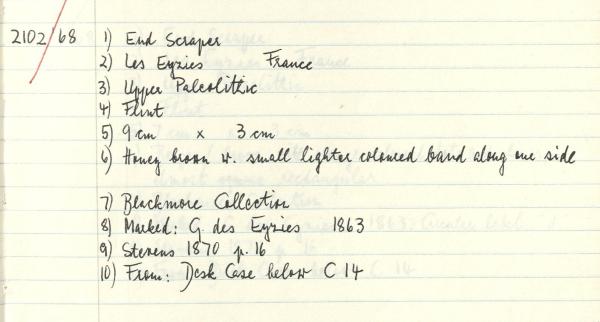 2102/68 1) End Scraper
2) Les Eyzies France
3) Upper Paleolithic
4) Flint
5) 9 cm x 3 cm
6) Honey brown w. small lighter coloured band along one side
7) Blackmore Collection
8) Marked: G. des Eyzies 1863
9) Stevens 1870 p. 16
10) From: Desk Case below C 14